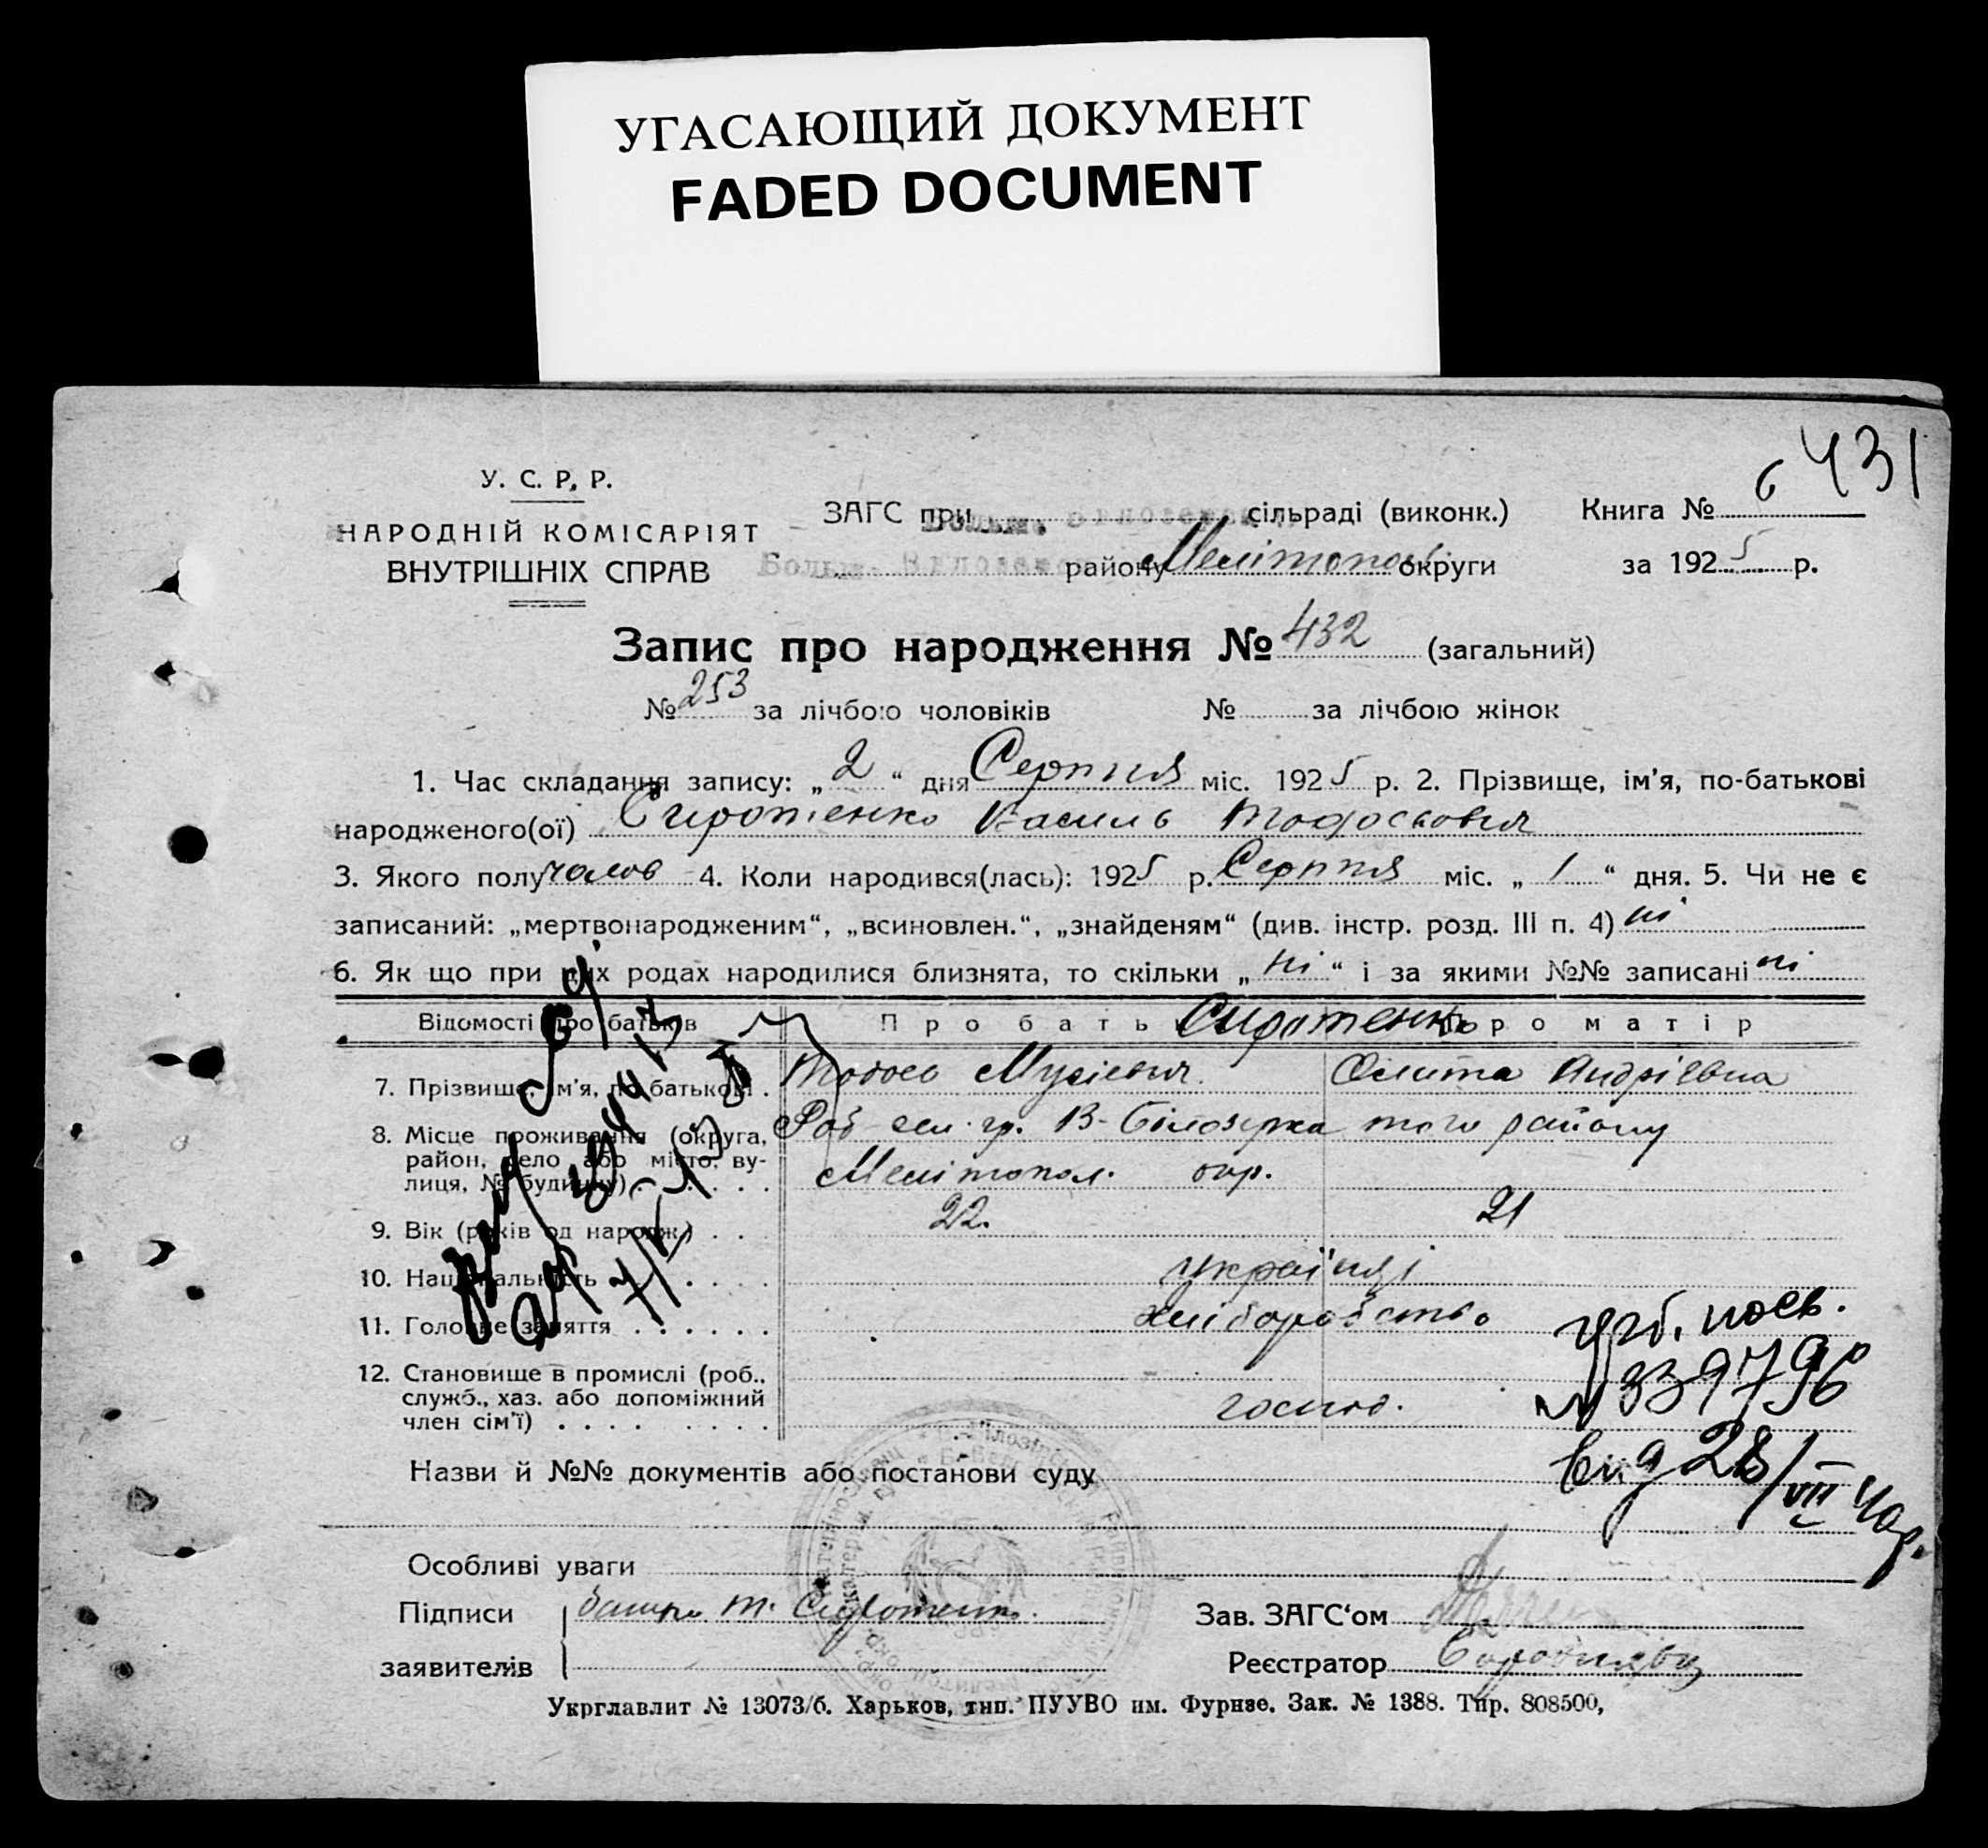 УГАСАЮЩИЙ ДОКУМЕНТ
FADED DOCUMENT
431
У. С. Р. Р.
НАРОДНІЙ КОМІСАРІЯТ
ВНУТРІШНІХ СПРАВ
ЗАГС при сільраді (виконк.)
Книга № 6
Больш. району Мелітополь округи
за 1925 р.
Запис про народження № 432 (загальний)
№ 253 за лічбою чоловіків № за лічбою жінок
1. Час складання запису: „ 2 “ дня Серпня міс. 1925 р. 2. Прізвище, ім’я, по-батькові
народженого(ої) Сиротенко Василь Тодосьович
3. Якого полу чолов 4. Коли народився(лась): 1925 р. Серпня міс. „ 1 “ дня. 5. Чи не є
записаний: „мертвонародженим“, „всиновлен.“, „знайденям“ (див. інстр. розд. III п. 4) ні
6. Як що при цих родах народилися близнята, то скільки „ ні “ і за якими №№ записані ні
Відомості про батьків Про батька Сиротенко Про матір
7. Прізвище, ім’я, по батькові . Тодось Мусієвич Олита Андріівна
8. Місце проживання (округа, район, село або місто, вулиця, № будинку) . . . . . гр. В-Білозерка того району
Мелітопол. окр.
9. Вік (років од народж.) . . . 22. 21
10. Національність . . . . . українці
11. Головне заняття . . . . . . хліборобство
12. Становище в промислі (роб., служб., хаз. або допоміжний член сім’ї) . . . . . . . . господ.
№ 339796
28/VIII 40р.
Назви й №№ документів або постанови суду
Особливі уваги
Підписи
заявителів
батько Т. Сиротенко.
Зав. ЗАГС‘ом
Реєстратор
Укрглавлит № 13073/б. Харьков, тип. ПУУВО им. Фурнзе. Зак. № 1388. Тир. 808500,